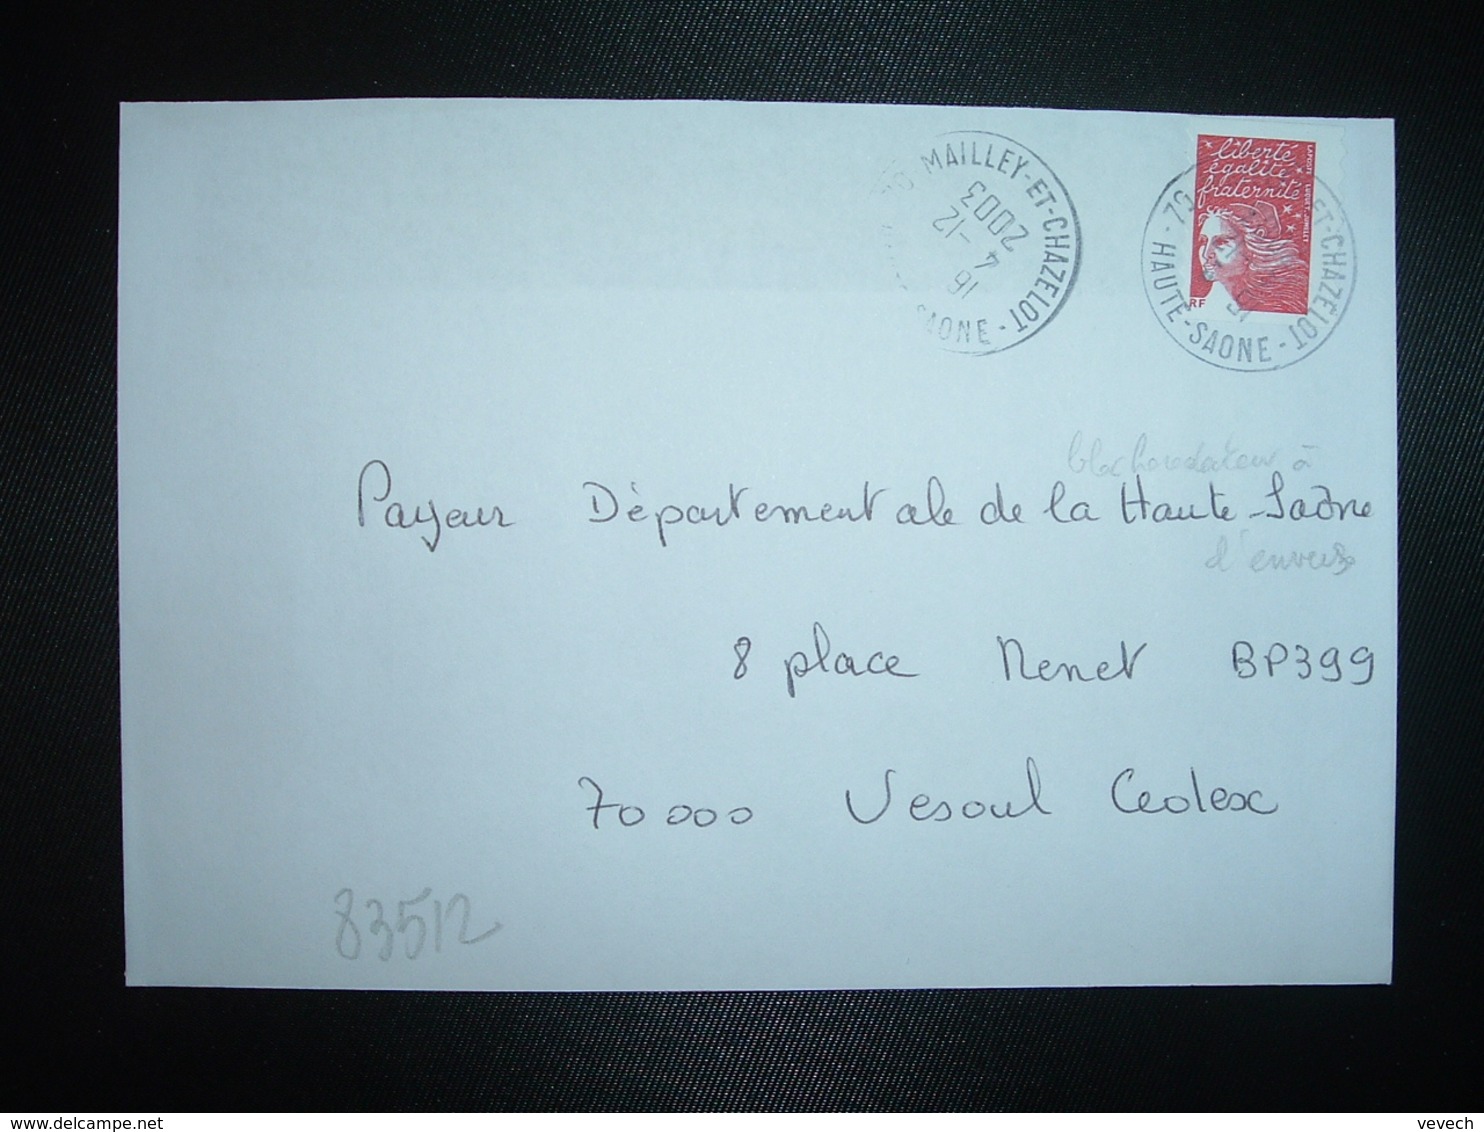 70 MAILLEY-ET-CHAZELOT
16
4 -12
2003
SAONE -
liberté
égalité
fraternité
LA POSTE
RF
70 ET-CHAZELOT
- HAUTE-SAONE -
à
Payeur Départementale de la Haute-Saône
d'envers
8 place Renet BP399
70000 Vesoul Cedex
83512
delcampe.net
vevech